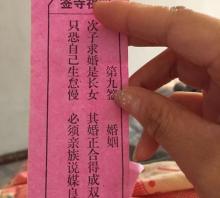 签寺祖
第九签　婚姻
次子求婚是长女　其婚正合得成双
只恐自己生怠慢　必须亲族说媒良